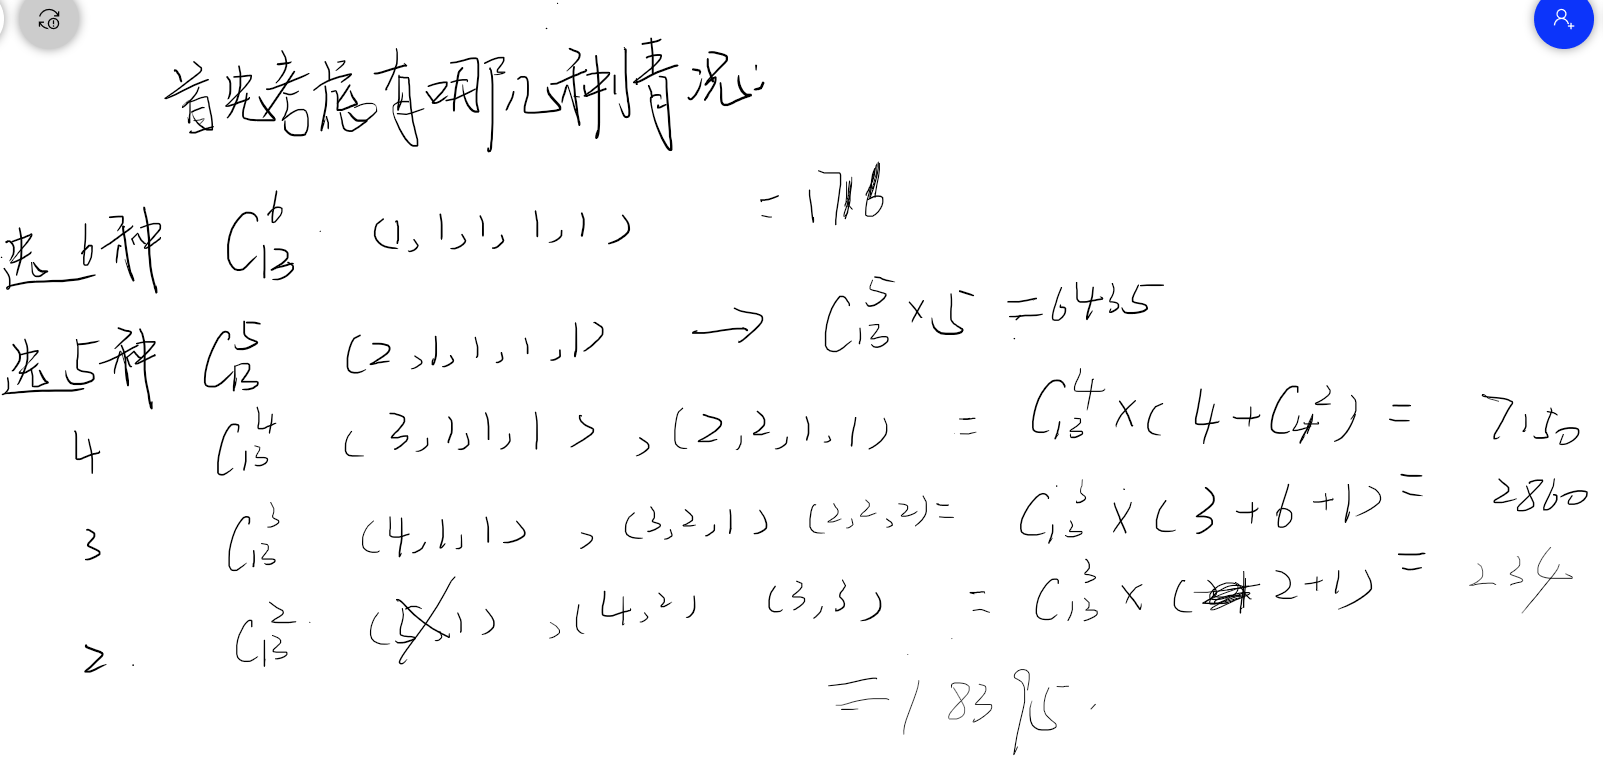 首先考虑有哪几种情况:
选6种 C₁₃⁶ (1,1,1,1,1) =1716
选5种 C₁₃⁵ (2,1,1,1,1) → C₁₃⁵×5 =6435
4 C₁₃⁴ (3,1,1,1),(2,2,1,1) = C₁₃⁴×(4+C₄²) = 7150
3 C₁₃³ (4,1,1),(3,2,1) (2,2,2)= C₁₃³×(3+6+1) = 2860
2. C₁₃² (5,1),(4,2) (3,3) = C₁₃³×(2+1) = 234
=18395.